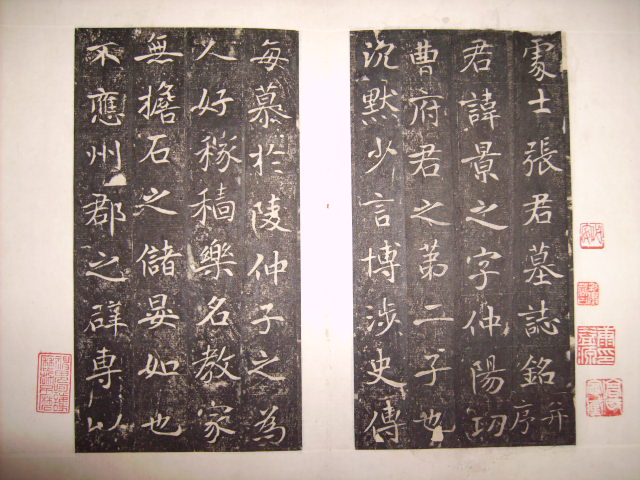 處士張君墓誌銘并序
君諱景之字仲陽功
曹府君之第二子也
沉默少言博涉史傳
每慕於陵仲子之為
人好稼穡樂名教家
無擔石之儲晏如也
不應州郡之辟專以